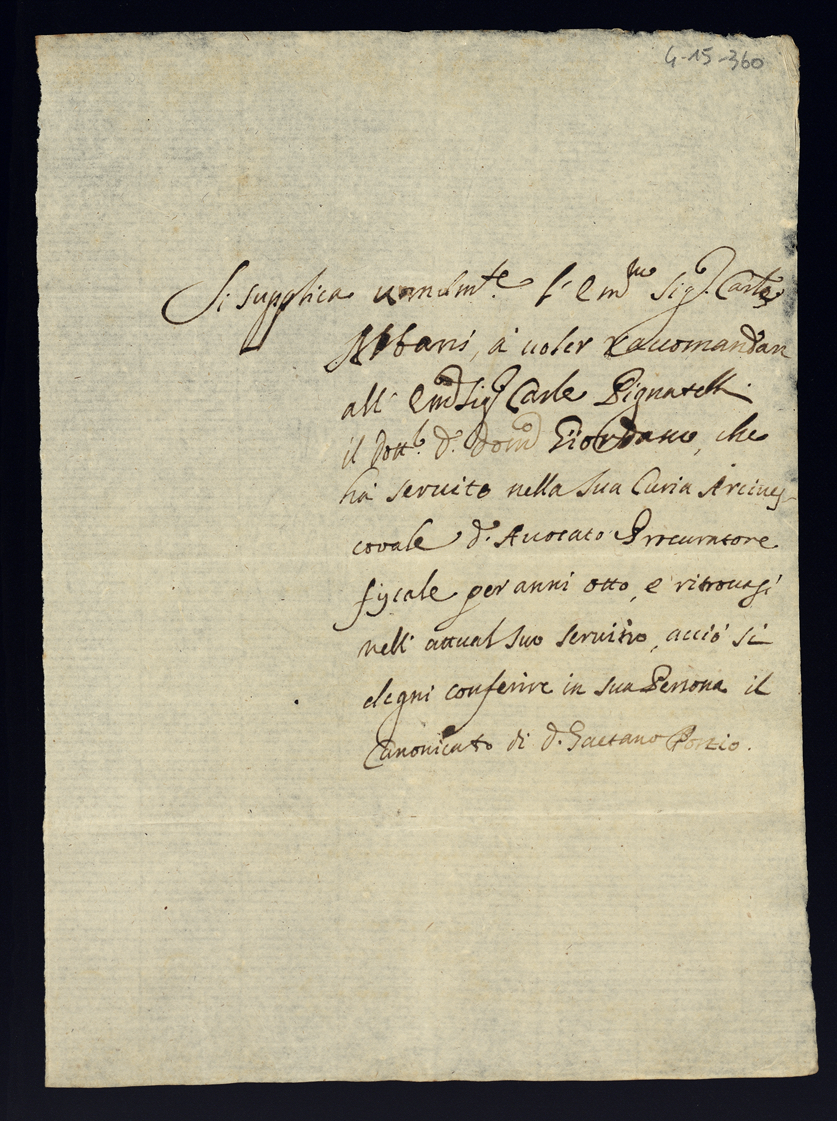 4-15-360
Si supplica umilmte. l'Emmo Sigr. Carle
Albani, à voler raccomandar
all' Emo Sigr Carle Pignatelli
il Dottr. D. Domco Giordano, che
ha servito nella sua Curia Arcives-
covale d'Avocato Procuratore
fiscale per anni otto, e ritrovasi
nell' attual suo servizio, acciò si
degni conferire in sua Persona il
Canonicato di D. Gaetano Porzio.